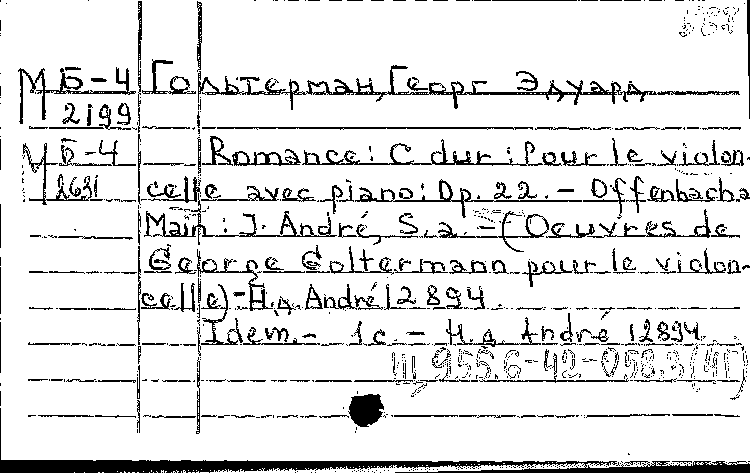 М Б-4 Гольтерман, Георг Эдуард
2199
М Б-4 Romance: C dur: Pour le violon-
2631 celle avec piano: Op. 22. – Offenbach a
Main: J. André, S.a. – (Oeuvres de
George Goltermann pour le violon-
celle) – Н.д. André 12894.
Idem. – 1с. – Н.д. André 12894.
III 955.6-42-058.3(4Г)